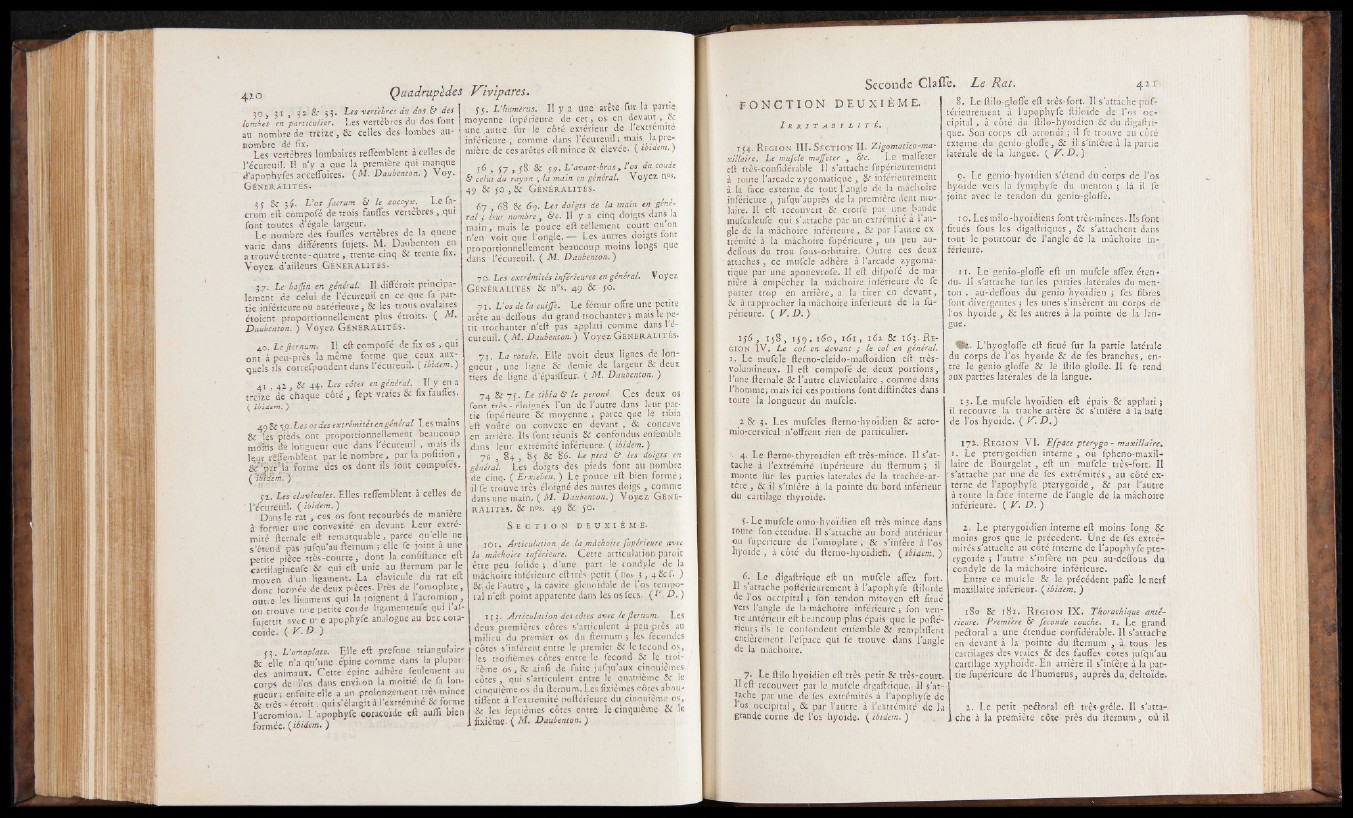 420 Quadrupèdes Vivipares.
30, 31, 32 & 33. Les vertèbres du dos & des
lombes en particulier. Les vertèbres du dos ſont
au nombre de treize, & celles des lombes au
nombre de ſix.
Les vertèbres lombaires reſſemblent à celles de
l'écureuil. Il n'y a que la première qui manque
d'apophyſes acceſſoires. (M. Daubenton.) Voy.
GÉNÉRALITÉS.
35 & 36. L'os ſacrum & le coccyx. Le ſa-
crum eſt compoſé de trois fauſſes vertèbres, qui
ſont toutes d'égale largeur.
Le nombre des fauſſes vertèbres de la queue
varie dans différents ſujets. M. Daubenton en
a trouvé trente-quatre, trente-cinq & trente ſix.
Voyez d'ailleurs GÉNÉRALITÉS.
37. Le baſſin en général. Il différoit principa-
lement de celui de l'écureuil en ce que ſa par-
tie inférieure ou antérieure, & les trous ovalaires
étoient proportionnellement plus étroits. (M.
Daubenton.) Voyez GÉNÉRALITÉS.
40. Le ſternum. Il eſt compoſé de ſix os, qui
ont à peu-près la même forme que ceux aux-
quels ils correſpondent dans l'écureuil. (ibidem.)
41, 42, & 44. Les côtes en général. Il y en a
treize de chaque côté, ſept vraies & ſix fauſſes.
(ibidem.)
49 & 50. Les os des extrémités en général Les mains
& les pieds ont proportionnellement beaucoup
moins de longueur que dans l'écureuil, mais ils
leur reſſemblent par le nombre, par la poſition,
& par la forme des os dont ils ſont compoſés.
(ibidem.)
52. Les clavicules. Elles reſſemblent à celles de
l'écureuil. (ibidem.)
Dans le rat, ces os ſont recourbés de manière
à former une convexité en devant. Leur extré-
mité ſternale eſt remarquable, parce qu'elle ne
s'étend pas juſqu'au ſternum; elle ſe joint à une
petite pièce très-courte, dont la conſiſtance eſt
cartilagineuſe & qui eſt unie au ſternum par le
moyen d'un ligament. La clavicule du rat eſt
donc formée de deux pièces. Près de l'omoplate,
outre les liiemens qui la joignent à l'acromion,
on trouve une petite corde ligamenteuſe qui l'aſ-
ſujettit avec une apophyſe analogue au bec cora-
coïde. (V. D.)
53. L'omoplate. Elle eſt preſque triangulaire
& elle n'a qu'une épine comme dans la plupart
des animaux. Cette épine adhère ſeulement au
corps de l'os dans environ la moitié de ſa lon-
gueur; enſuite elle a un prolongement très-mince
& très-étroit, qui s'élargit à l'extrémité & forme
l'acromion. L'apophyſe coracoïde eſt auſſi bien
formée. (ibidem.)
55. L'humérus. Il y a une arête ſur la partie
moyenne ſupérieure de cet os en devant, &
une autre ſur le côté extérieur de l'extrémité
inférieure, comme dans l'écureuil; mais la pre-
mière de ces arêtes eſt mince & élevée. (ibidem.)
56, 57, 58 & 59. L'avant-bras, l'os du coude
& celui du rayon, la main en général. Voyez nos.
49 & 50, & GÉNÉRALITÉS.
67, 68 & 69. Les doigts de la main en géné-
ral; leur nombre, &c. Il y a cinq doigts dans la
main, mais le pouce eſt tellement court qu'on
n'en voit que l'ongle. — Les autres doigts ſont
proportionnellement beaucoup moins longs que
dans l'écureuil. (M. Daubenton.)
70. Les extrémités inférieures en général. Voyez
GÉNÉRALITÉS & nos. 49 & 50.
71. L'os de la cuiſſe. Le fémur offre une petite
arête au-deſſous du grand trochanter; mais le pe-
tit trochanter n'eſt pas applati comme dans l'é-
cureuil. (M. Daubenton.) Voyez GÉNÉRALITÉS.
73. La rotule. Elle avoit deux lignes de lon-
gueur, une ligne & demie de largeur & deux
tiers de ligne d'épaiſſeur. (M. Daubenton.)
74 & 75. Le tibia & le peroné. Ces deux os
ſont très-éloignés l'un de l'autre dans leur par-
tie ſupérieure & moyenne, parce que le tibia
eſt voûté ou convexe en devant, & concave
en arrière. Ils ſont réunis & confondus enſemble
dans leur extrémité inférieure. (ibidem.)
76, 84, 85 & 86. Le pied & les doigts en
général. Les doigts des pieds ſont au nombre
de cinq. (Erxleben.) Le pouce eſt bien formé;
il ſe trouve très éloigné des autres doigs, comme
dans une main. (M. Daubenton.) Voyez GÉNÉ-
RALITÉS. & nos. 49 & 50.
SECTION DEUXIÈME.
101. Articulation de la mâchoire ſupérieure avec
la mâchoire inférieure. Cette articulation paroît
être peu ſolide; d'une part le condyle de la
mâchoire inférieure eſt très-petit (nos 3, 4 & ſ.)
& de l'autre, la cavité glénoïdale de l'os tempo-
ral n'eſt point apparente dans les os ſecs. (V. D.)
113. Articulation des côtes avec le ſternum. Les
deux premières côtes s'articulent à peu-près au
milieu du premier os du ſternum; les ſecondes
côtes s'inſèrent entre le premier & le ſecond os,
les troiſièmes côtes entre le ſecond & le troi-
ſième os, & ainſi de ſuite juſqu'aux cinquièmes
côtes, qui s'articulent entre le quatrième & le
cinquième os du ſternum. Les ſixièmes côtes abou-
tiſſent à l'extrémité poſtérieure du cinquième os,
& les ſeptièmes côtes entre le cinquième & le
ſixième. (M. Daubenton.)
Seconde Claſſe. Le Rat. 421
FONCTION DEUXIÈME.
IRRITABILITÉ.
154. RÉGION III. SECTION II. Zigomatico-ma-
xillaire. Le muſcle maſſeter, &c. Le maſſeter
eſt très-conſidérable Il s'attache ſupérieurement
à toute l'arcade zygomatique, & inférieurement
à la face externe de tout l'angle de la mâchoire
inférieure, juſqu'auprès de la première dent mo-
laire. Il eſt recouvert & croiſé par une bande
muſculeuſe qui s'attache par un extrémité à l'an-
gle de la mâchoire inférieure, & par l'autre ex
trémité à la mâchoire ſupérieure, un peu au-
deſſous du trou ſous-orbitaire. Outre ces deux
attaches, ce muſcle adhère à l'arcade zygoma-
tique par une aponevroſe. Il eſt diſpoſé de ma-
nière à empêcher la mâchoire inférieure de ſe
porter trop en arrière, à la tirer en devant,
& à rapprocher la mâchoire inférieure de la ſu-
périeure. (V. D.)
156, 158, 159, 160, 161, 162 & 163. RÉ-
GION IV. Le col en devant; le col en général.
1. Le muſcle ſterno-cleido-maſtoïdien eſt très-
volumineux. Il eſt compoſé de deux portions,
l'une ſternale & l'autre claviculaire, comme dans
l'homme; mais ici ces portions ſont diſtinctes dans
toute la longueur du muſcle.
2 & 3. Les muſcles ſterno-hyoïdien & acro-
mio-cervical n'offrent rien de particulier.
4. Le ſterno-thyroïdien eſt très-mince. Il s'at-
tache à l'extrémité ſupérieure du ſternum; il
monte ſur les parties latérales de la trachée-ar-
tère, & il s'inſère à la pointe du bord inférieur
du cartilage thyroïde.
5. Le muſcle omo-hyoïdien eſt très mince dans
toute ſon étendue. Il s'attache au bord antérieur
ou ſupérieure de l'omoplate, & s'inſère à l'os
hyoïde, à côté du ſterno-hyoïdien. (ibidem.)
6. Le digaſtrique eſt un muſcle aſſez fort.
Il s'attache poſtérieurement à l'apophyſe ſtiloïde
de l'os occipital; ſon tendon mitoyen eſt ſitué
vers l'angle de la mâchoire inférieure; ſon ven-
tre antérieur eſt beaucoup plus épais que le poſté-
rieur; ils ſe confondent enſemble & rempliſſent
entièrement l'eſpace qui ſe trouve dans l'angle
de la mâchoire.
7. Le ſtilo hyoïdien eſt très-petit & très-court.
Il eſt recouvert par le muſcle digaſtrique. Il s'at-
tache par une de ſes extrémités à l'apophyſe de
l'os occipital, & par l'autre à l'extrémité de la
grande corne de l'os hyoïde. (ibidem.)
8. Le ſtilo-gloſſe eſt très-fort. Il s'attache poſ-
térieurement à l'apophyſe ſtiloïde de l'os oc-
cipital, à côté du ſtilo-hyoïdien & du digaſtri-
que. Son corps eſt arrondi; il ſe trouve au côté
externe du genio-gloſſe, & il s'inſère à la partie
latérale de la langue. (V. D.)
9. Le genio-hyoïdien s'étend du corps de l'os
hyoïde vers la ſymphyſe du menton; là il ſe
joint avec le tendon du genio-gloſſe.
10. Les milo-hyoïdiens ſont très-minces. Ils ſont
ſitués ſous les digaſtriques, & s'attachent dans
tout le pourtour de l'angle de la mâchoire in-
férieure.
11. Le genio-gloſſe eſt un muſcle aſſez éten-
du. Il s'attache ſur les parties latérales du men-
ton, au-deſſous du genio hyoïdien; ſes fibres
ſont divergentes; les unes s'insèrent au corps de
l'os hyoïde, & les autres à la pointe de la lan-
gue.
12. L'hyogloſſe eſt ſitué ſur la partie latérale
du corps de l'os hyoïde & de ſes branches, en-
tre le genio-gloſſe & le ſtilo gloſſe. Il ſe rend
aux parties latérales de la langue.
13. Le muſcle hyoïdien eſt épais & applati;
il recouvre la trache artère & s'inſère à la baſe
de l'os hyoïde. (V. D.)
172. RÉGION VI. Eſpace pterygo-maxillaire.
1. Le pterygoïdien interne, ou ſpheno-maxil-
laire de Bourgelat, eſt un muſcle très-fort. Il
s'attache par une de ſes extrémités, au côté ex-
terne de l'apophyſe pterygoïde, & par l'autre
à toute la face interne de l'angle de la mâchoire
inférieure. (V. D.)
2. Le pterygoïdien interne eſt moins long &
moins gros que le précédent. Une de ſes extré-
mités s'attache au côté interne de l'apophyſe pte-
rygoïde; l'autre s'inſère un peu au-deſſous du
condyle de la mâchoire inférieure.
Entre ce muſcle & le précédent paſſe le nerf
maxillaire inférieur. (ibidem.)
180 & 181. RÉGION IX. Thorachique anté-
rieure. Première & ſeconde couche. 1. Le grand
pectoral a une étendue conſidérable. Il s'attache
en devant à la pointe du ſternum, à tous les
cartilages des vraies & des fauſſes côtes juſqu'au
cartilage xyphoïde. En arrière il s'inſère à la par-
tie ſupérieure de l'humerus, auprès du deltoïde.
2. Le petit pectoral eſt très-grêle. Il s'atta-
che à la première côte près du ſternum, où il